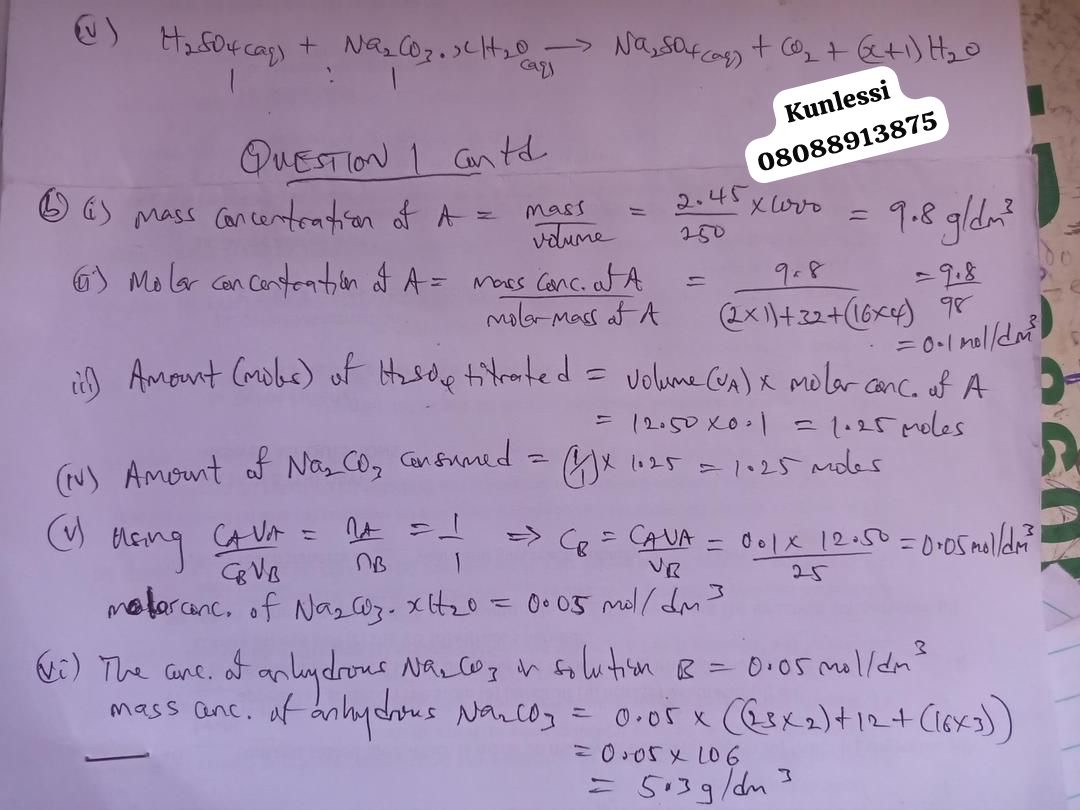 (v) H₂SO₄(aq) + Na₂CO₃.xH₂O(aq) → Na₂SO₄(aq) + CO₂ + (x+1)H₂O
1 : 1
Kunlessi
08088913875
QUESTION 1 contd
(b) (i) Mass concentration of A = mass/volume = 2.45/250 × 1000 = 9.8 g/dm³
(ii) Molar concentration of A = mass conc. of A/molar mass of A = 9.8/(2×1)+32+(16×4) = 9.8/98
= 0.1 mol/dm³
iii) Amount (moles) of H₂SO₄ titrated = volume (VA) × molar conc. of A
= 12.50 × 0.1 = 1.25 moles
(iv) Amount of Na₂CO₃ consumed = (1/1) × 1.25 = 1.25 moles
(v) Using CAVA/CBVB = nA/nB = 1/1 ⇒ CB = CAVA/VB = 0.1 × 12.50/25 = 0.05 mol/dm³
molar conc. of Na₂CO₃.xH₂O = 0.05 mol/dm³
(vi) The conc. of anhydrous Na₂CO₃ in solution B = 0.05 mol/dm³
mass conc. of anhydrous Na₂CO₃ = 0.05 × ((23×2)+12+(16×3))
= 0.05 × 106
= 5.3 g/dm³